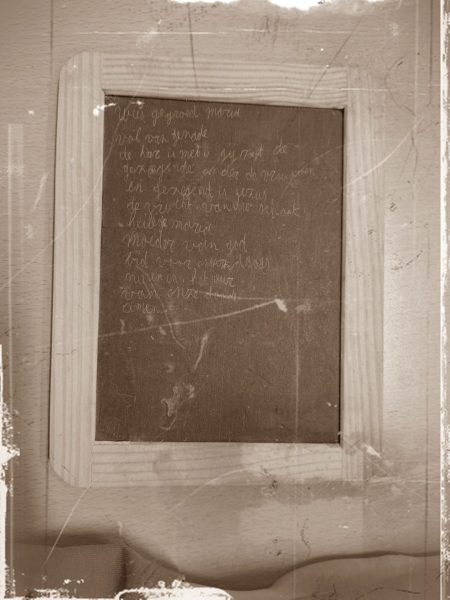 Wees gegroet maria
vol van genade
de heer is met u gij zijt de
gezegende onder de vrouwen
en gezegend is jezus
de vrucht van uw schoot
heilige maria
moeder van god
bid voor ons
nu en in het uur
van onze dood
amen